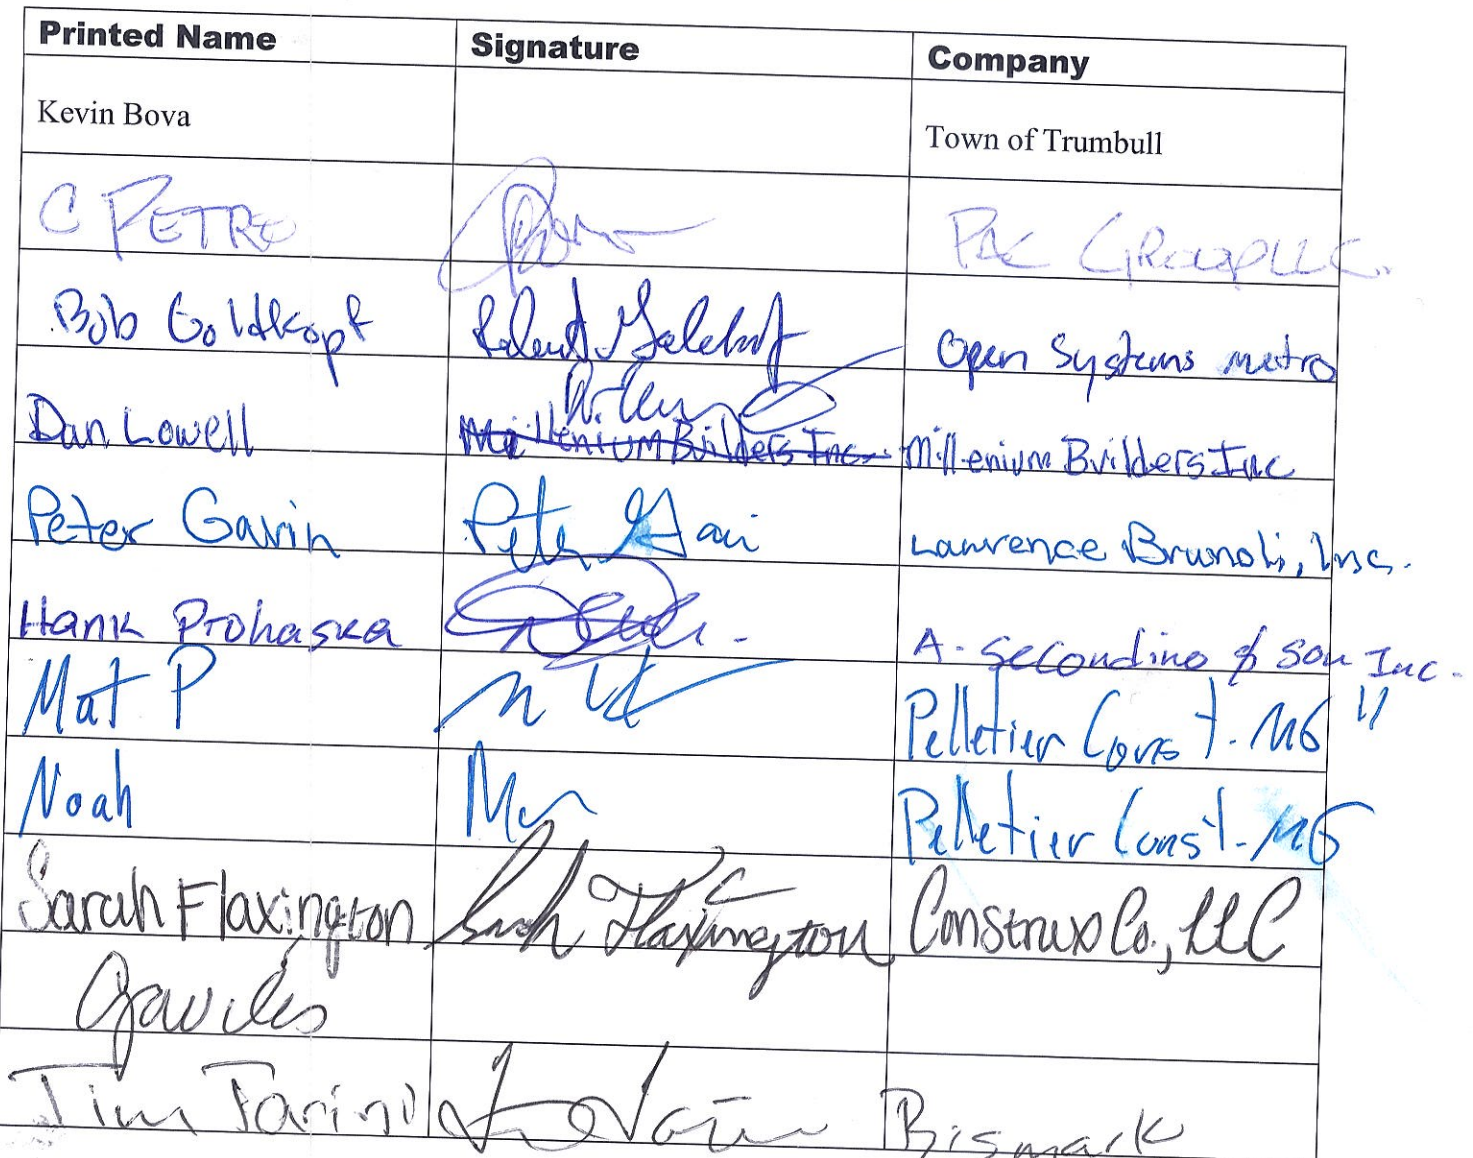 Printed Name Signature Company
Kevin Bova Town of Trumbull
C PETRO PAC Group LLC.
Bob Goldkopf Open Systems metro
Dan Lowell Millenium Builders Inc. Millenium Builders Inc
Peter Gavin Lawrence Brunoli, Inc.
Hank Prohaska A. Secondino & Son Inc.
Mat P Pelletier Const. MG "
Noah Pelletier Const. MG
Sarah Flaxington Sarah Flaxington Construx Co., LLC
Jim Tarini Bismark